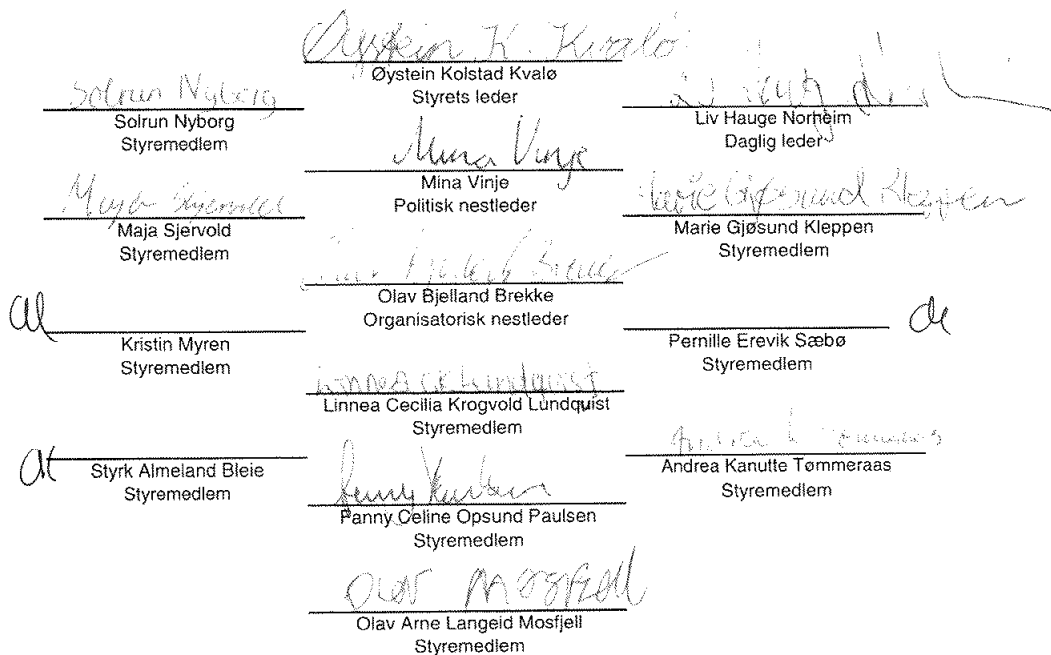 Øystein K. Kvalø
Øystein Kolstad Kvalø
Styrets leder
Solrun Nyborg
Solrun Nyborg
Styremedlem
Liv Hauge Norheim
Daglig leder
Mina Vinje
Mina Vinje
Politisk nestleder
Maja Sjervold
Styremedlem
Marie Gjøsund Kleppen
Marie Gjøsund Kleppen
Styremedlem
Olav Bjelland Brekke
Organisatorisk nestleder
Kristin Myren
Styremedlem
Pernille Erevik Sæbø
Styremedlem
Linnea Cecilia Krogvold Lundquist
Styremedlem
Styrk Almeland Bleie
Styremedlem
Andrea Kanutte Tømmeraas
Styremedlem
Fanny Celine Opsund Paulsen
Styremedlem
Olav Mosfjell
Olav Arne Langeid Mosfjell
Styremedlem